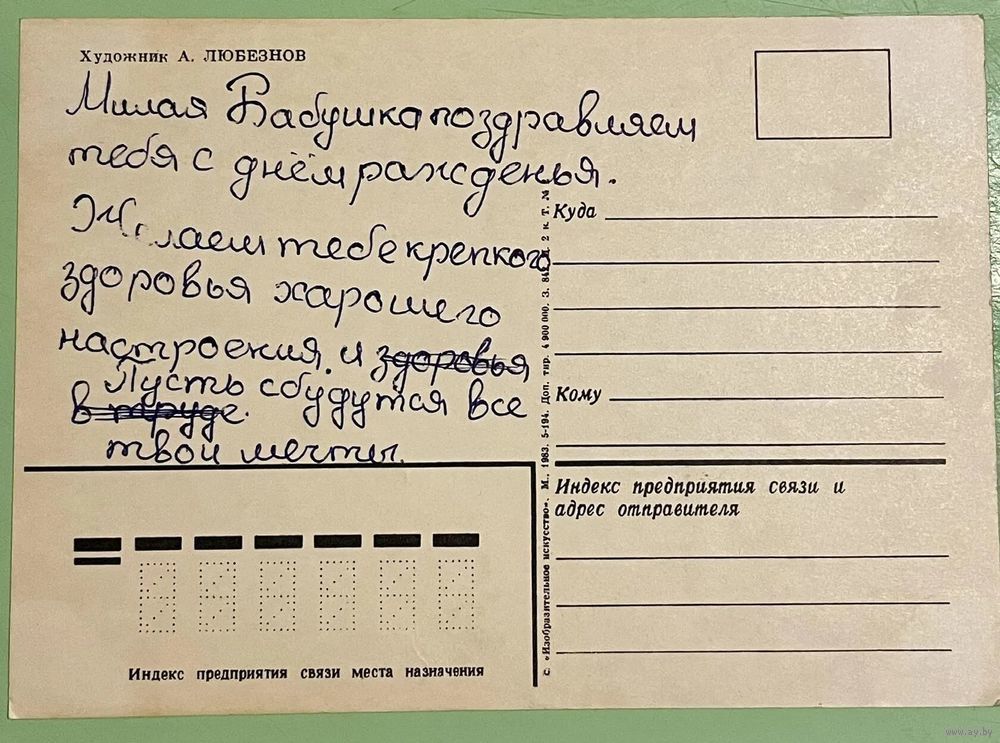 Художник А. ЛЮБЕЗНОВ
Милая Бабушка поздравляем
тебя с днём ражденья.
Желаем тебе крепкого
здоровья харошего
настроения. и здоровья
Пусть сбудутся все
в труде.
твои мечты.
Куда
Кому
Индекс предприятия связи и
адрес отправителя
Индекс предприятия связи места назначения
© «Изобразительное искусство». М., 1983. 5-194. Доп. тир. 4 900 000. З. 2 к. Т. №
www.ay.by